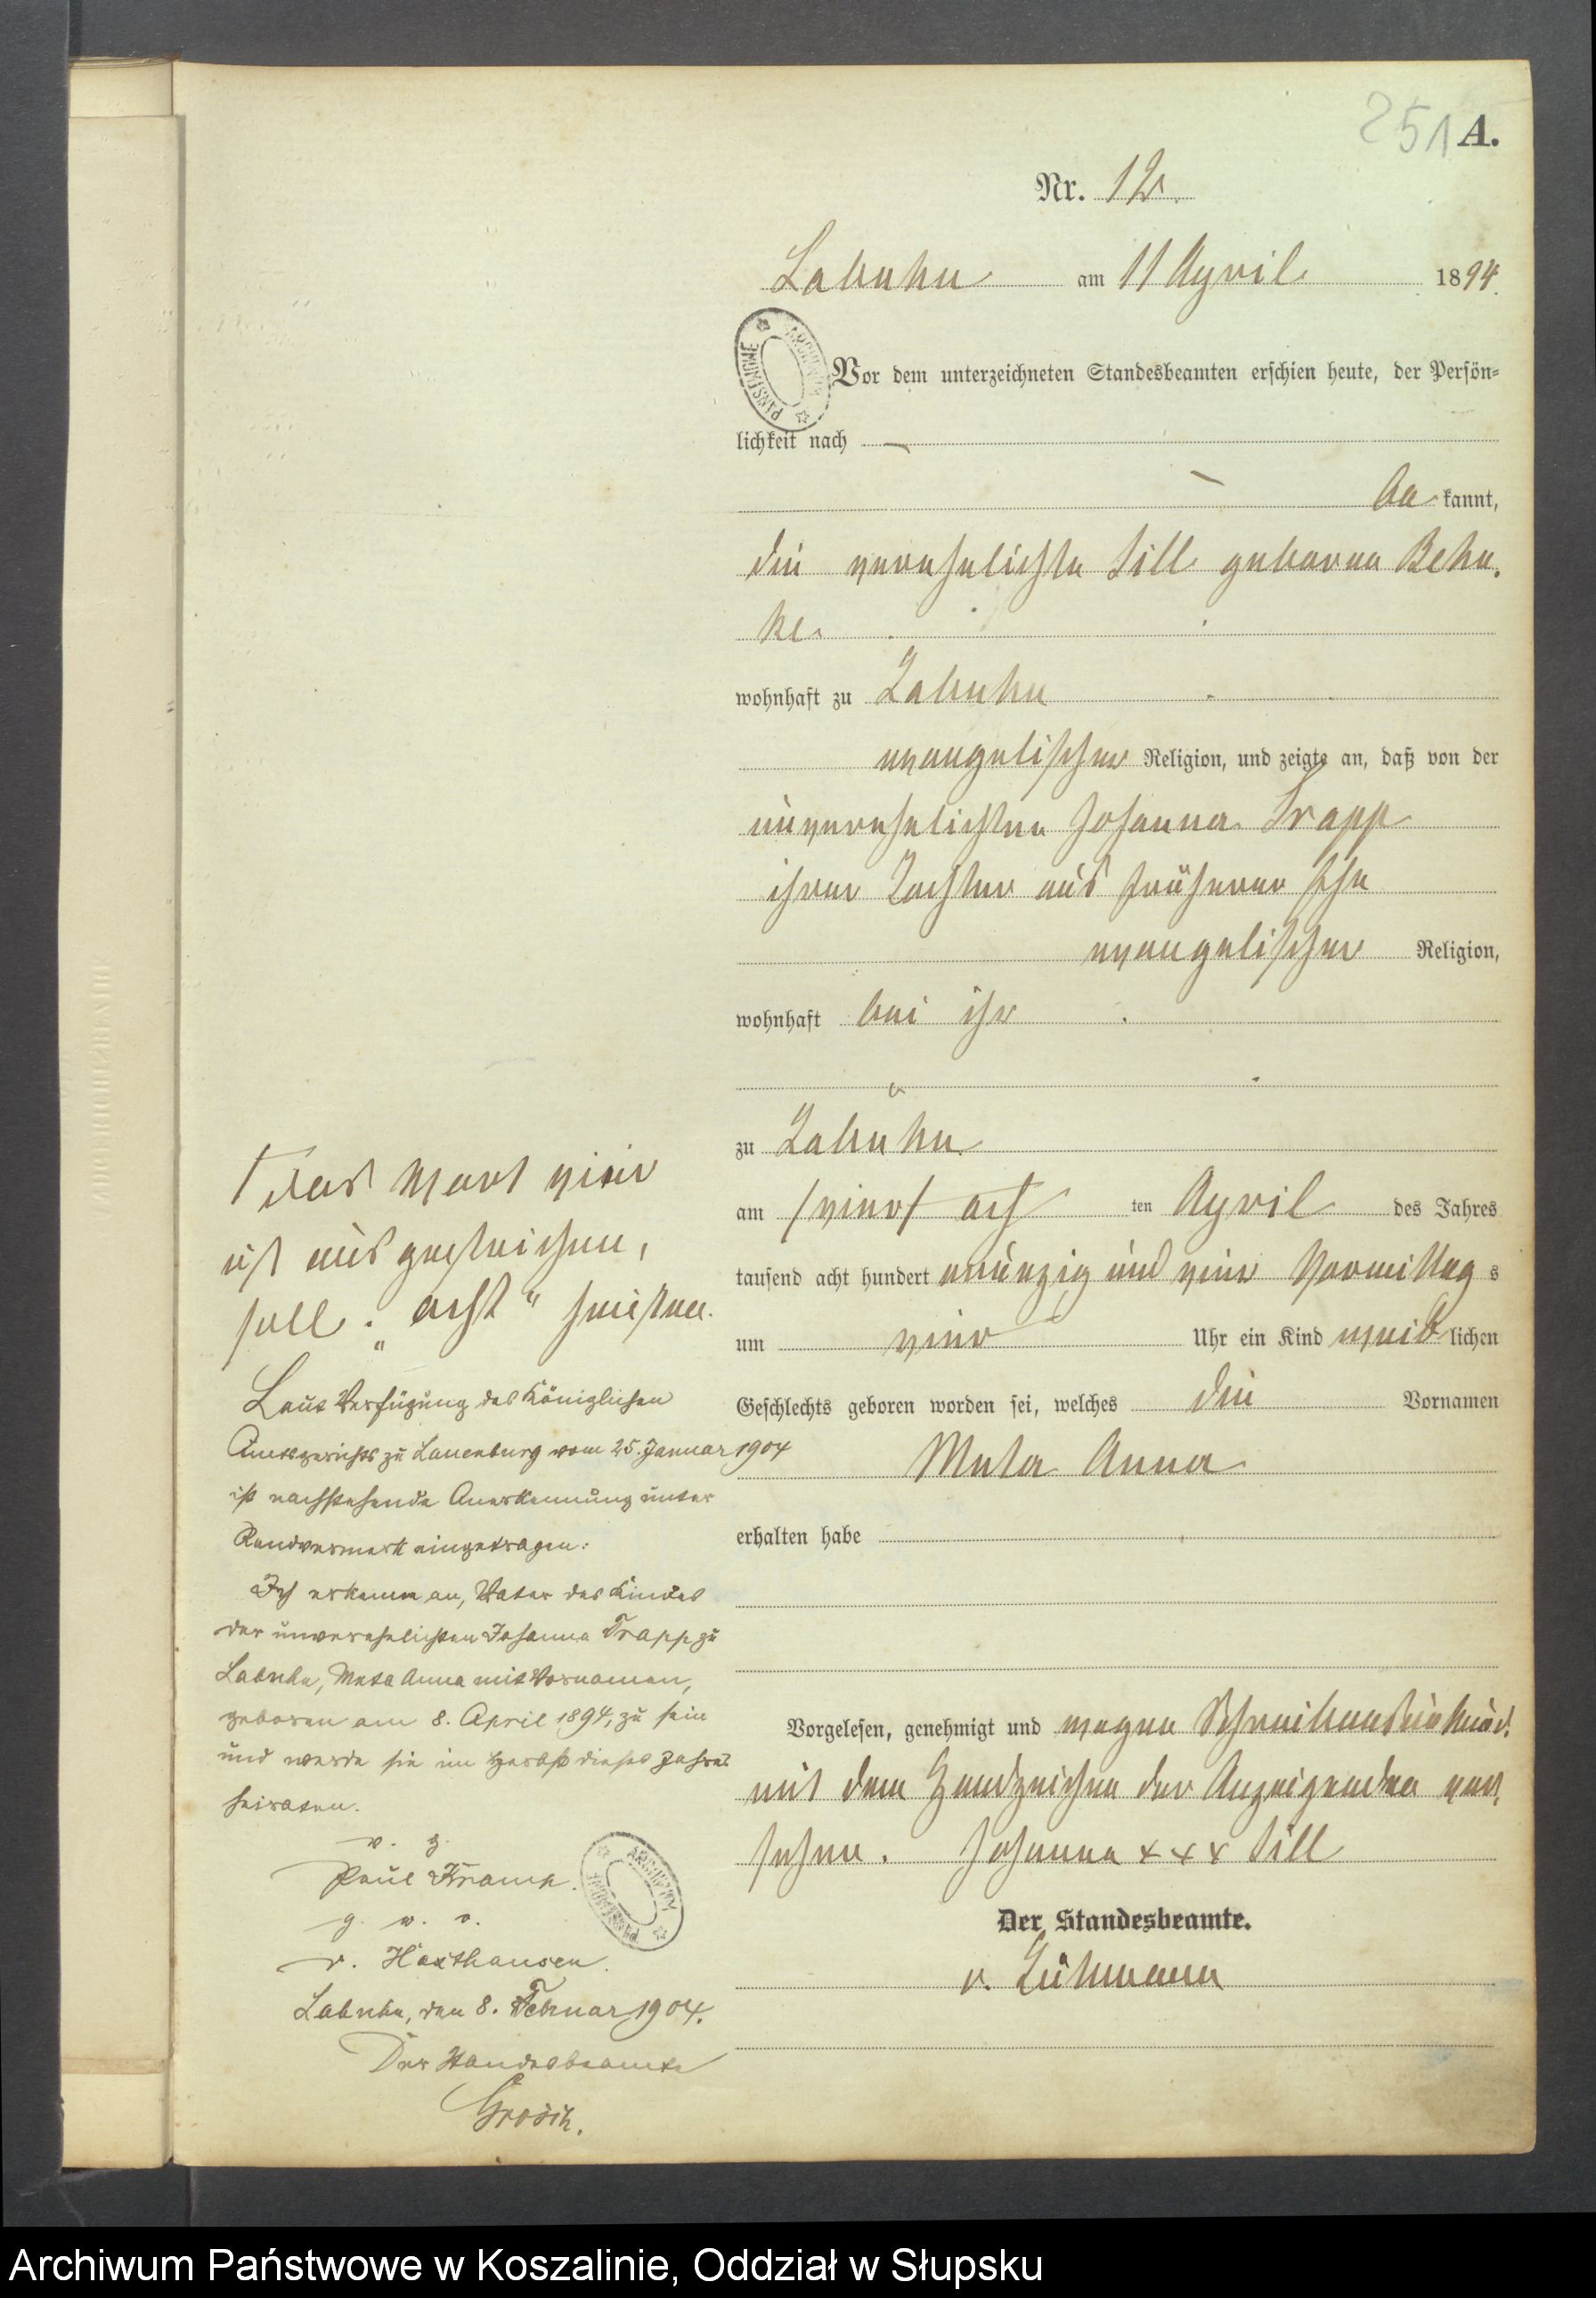 251 A.
Nr. 12.
Labuhn am 11 April 1894.
Vor dem unterzeichneten Standesbeamten erschien heute, der Persön-
lichkeit nach —
— be kannt,
die verehelichte Sill geborene Behn-
ke
wohnhaft zu Labuhn
evangelischer Religion, und zeigte an, daß von der
unverehelichten Johanna Trapp
ihrer Tochter aus früherer Ehe
evangelischer Religion,
wohnhaft bei ihr
zu Labuhn
am /vier/ ach ten April des Jahres
tausend acht hundert neunzig und vier Vormittag s
um vier Uhr ein Kind weib lichen
Geschlechts geboren worden sei, welches die Vornamen
Meta Anna
erhalten habe
Vorgelesen, genehmigt und wegen Schreibensunkund.
mit dem Handzeichen der Anzeigenden ver-
sehen. Johanna x x x Sill
Der Standesbeamte.
v.
Das Wort vier
ist ausgestrichen,
soll: „acht" heißen.
Laut Verfügung des Königlichen
Amtsgerichts zu Lauenburg vom 25. Januar 1904
ist nachstehende Anerkennung unter
Randvermerk eingetragen:
Ich erkenne an, Vater des Kindes
der unverehelichten Johanna Trapp zu
Labuhn, Meta Anna mit Vornamen,
geboren am 8. April 1894, zu sein
und werde sie im Herbst dieses Jahres
heiraten.
v. g.
Paul
g. w. o.
v. Haxthausen.
Labuhn, den 8. Februar 1904.
Der Standesbeamte
Grosch.
ARCHIWUM PAŃSTWOWE
ARCHIWUM PAŃSTWOWE
Archiwum Państwowe w Koszalinie, Oddział w Słupsku